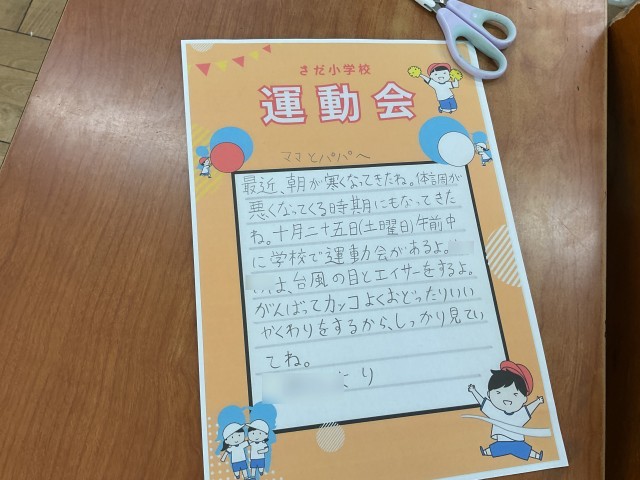 さだ小学校
運動会
ママとパパへ
最近、朝が寒くなってきたね。体調が
悪くなってくる時期にもなってきた
ね。十月二十五日(土曜日)午前中
に学校で運動会があるよ。
は、台風の目とエイサーをするよ。
がんばってカッコよくおどったりいい
やくわりをするから、しっかり見てい
てね。
より